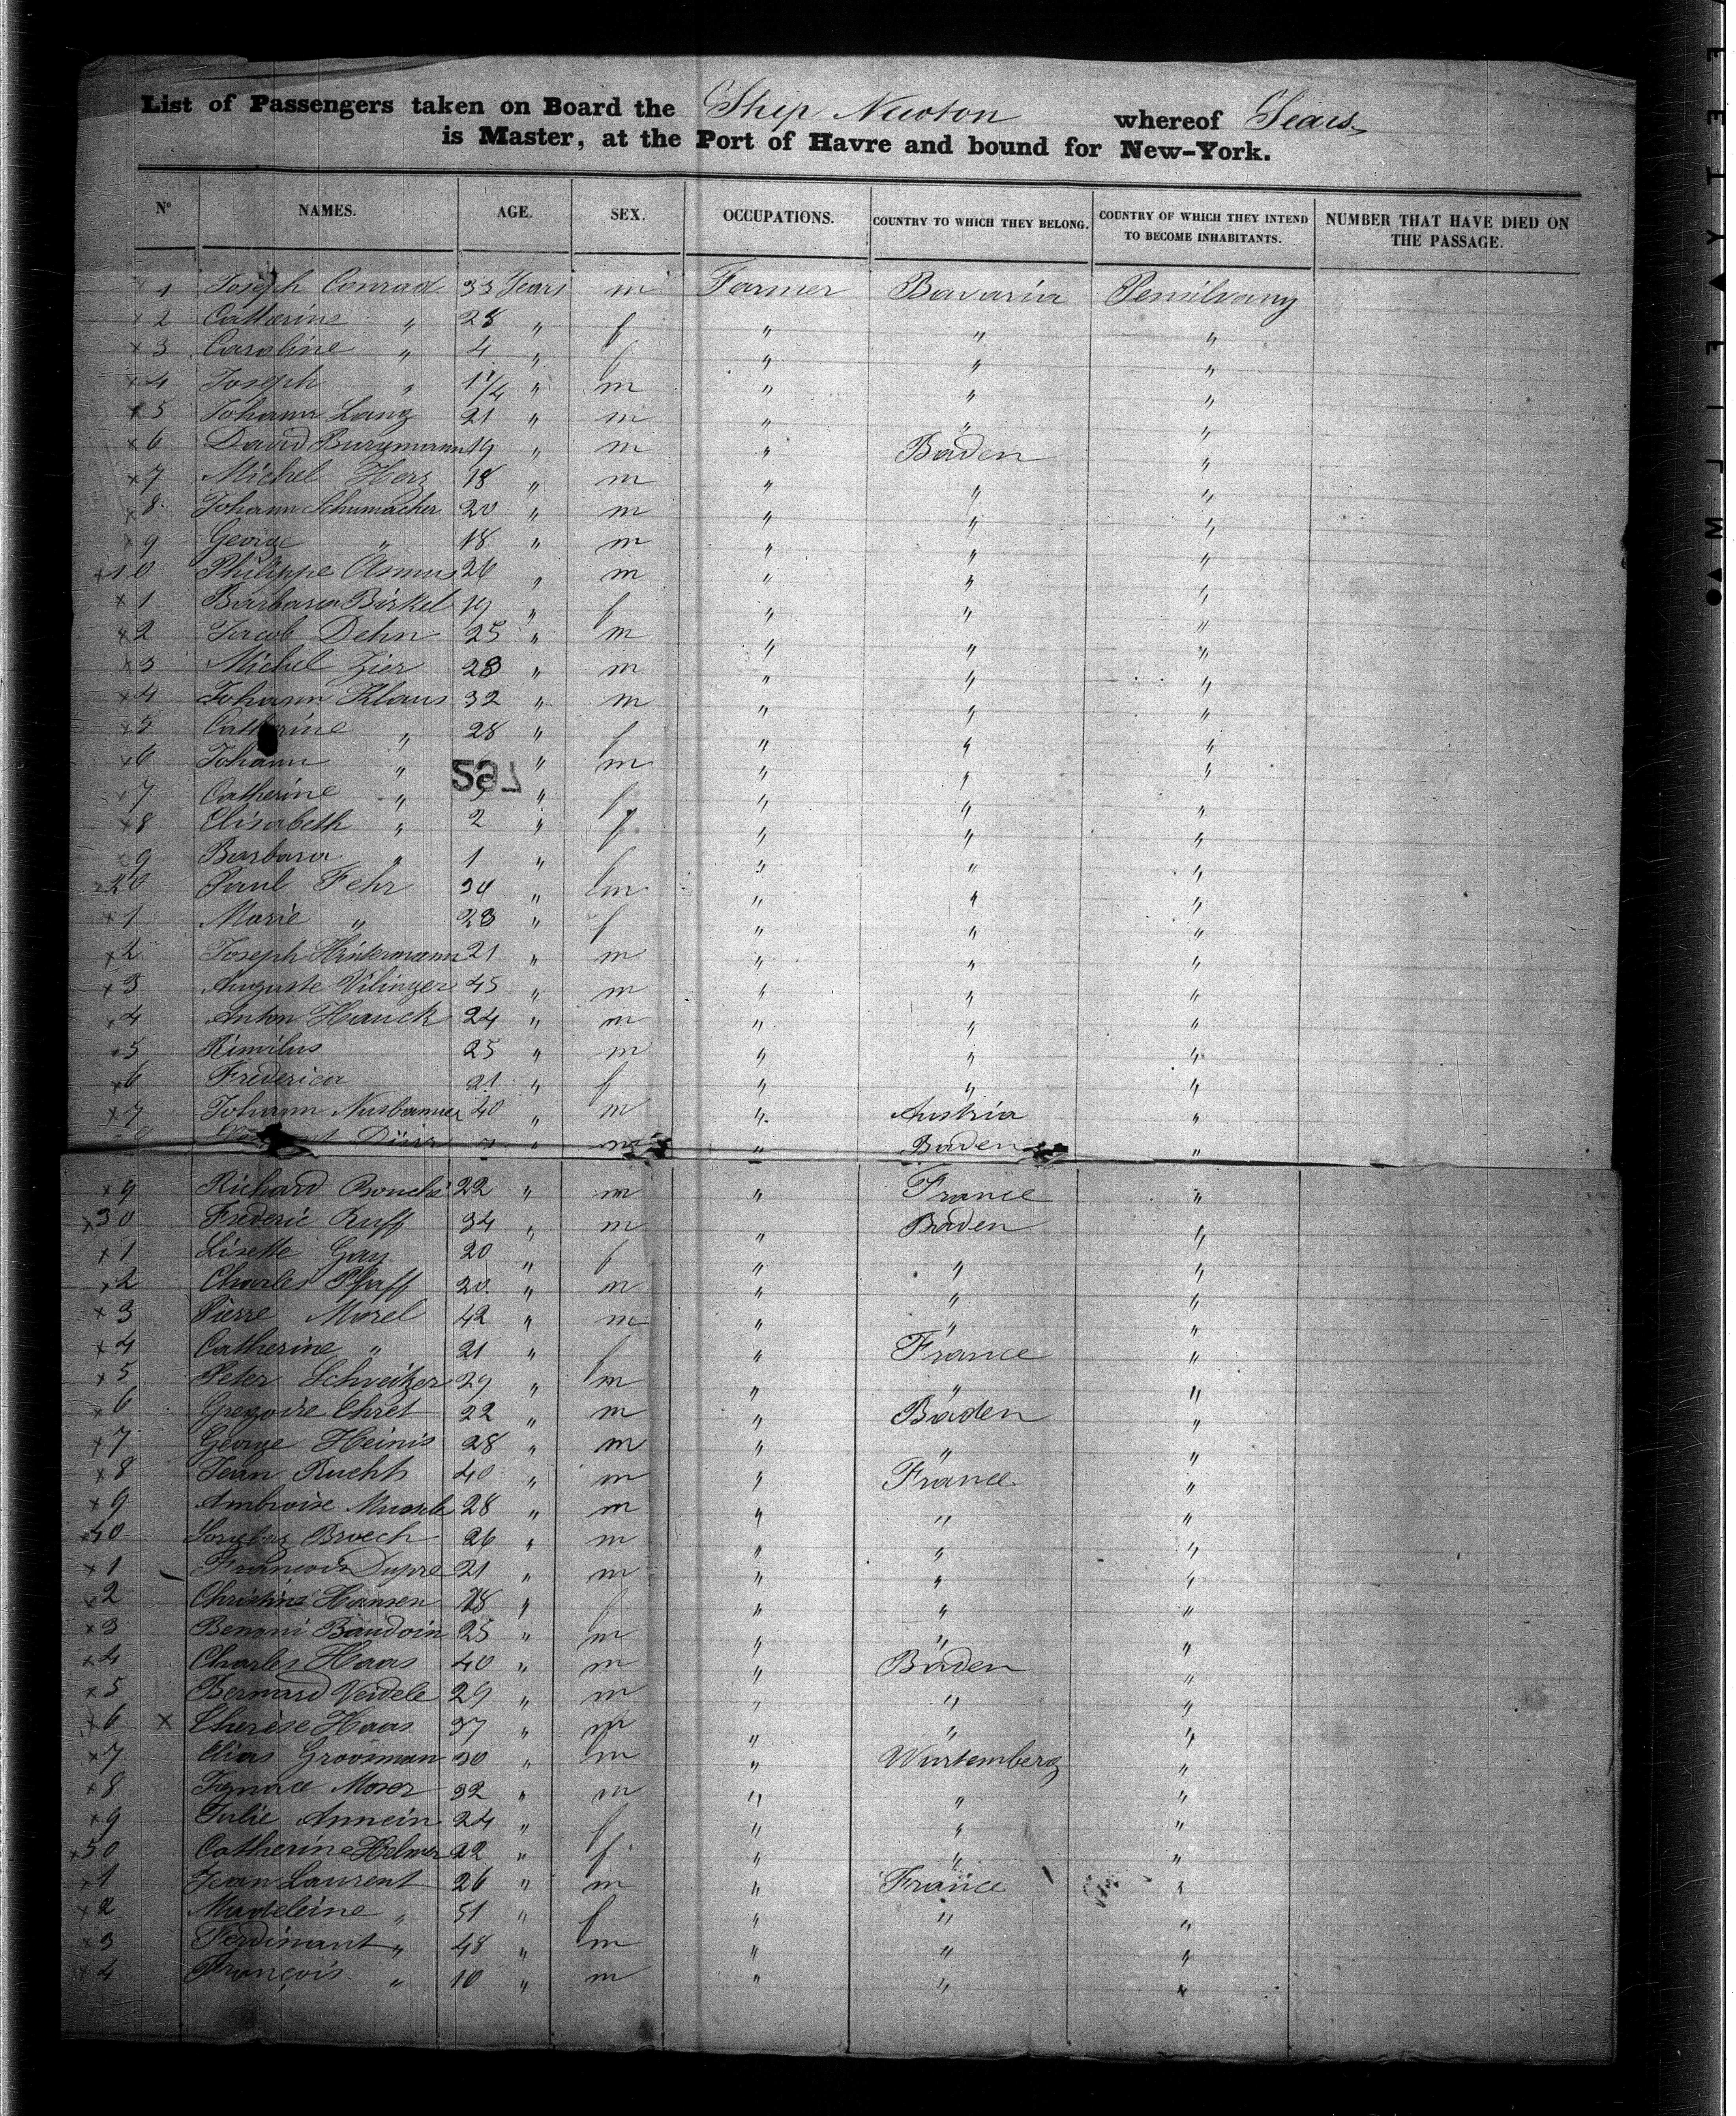 List of Passengers taken on Board the Ship Newton whereof Sears
is Master, at the Port of Havre and bound for New-York.
N° NAMES. AGE. SEX. OCCUPATIONS. COUNTRY TO WHICH THEY BELONG. COUNTRY OF WHICH THEY INTEND TO BECOME INHABITANTS. NUMBER THAT HAVE DIED ON THE PASSAGE.
x 1 Joseph Conrad 33 Years m Farmer Bavaria Pensilvany
x 2 Catherine " 28 " f " " "
x 3 Caroline " 4 " f " " "
x 4 Joseph " 1 1/4 " m " " "
x 5 Johann Lang 21 " m " " "
x 6 David Burgmann 19 " m " Baden "
x 7 Michel Herz 18 " m " " "
x 8 Johann Schumacher 20 " m " " "
x 9 George " 18 " m " " "
x 10 Philippe Asmus 26 " m " " "
x 1 Barbara Birkel 19 " f " " "
x 2 Jacob Dehn 25 " m " " "
x 3 Michel Zier 28 " m " " "
x 4 Johann Klaus 32 " m " " "
x 5 Catherine " 28 " f " " "
x 6 Johann " " m " " "
x 7 Catherine " " f " " "
x 8 Elisabeth " 2 " f " " "
x 9 Barbara " 1 " f " " "
x 20 Paul Fehr 34 " m " " "
x 1 Marie " 23 " f " " "
x 2 Joseph Hintermann 21 " m " " "
x 3 Auguste Vilinger 45 " m " " "
x 4 Anton Hauck 24 " m " " "
x 5 25 " m " " "
x 6 Frederica 21 " f " " "
x 7 Johann Nusbaumer 40 " m " Austria "
" m " Baden "
x 9 Richard Bouché 22 " m " France "
x 30 Frederic Ruff 34 " m " Baden "
x 1 Lisette Gay 20 " f " " "
x 2 Charles Pfaff 20 " m " " "
x 3 Pierre Morel 42 " m " " "
x 4 Catherine " 21 " f " France "
x 5 Peter Schveitzer 29 " m " " "
x 6 Gregoire Ehret 22 " m " Baden "
x 7 George Heinis 28 " m " " "
x 8 Jean Ruchts 40 " m " France "
x 9 Ambroise 28 " m " " "
x 40 Broech 26 " m " " "
x 1 François Dupre 21 " m " " "
x 2 Christine Hansen 18 " f " " "
x 3 Benoni Baudoin 25 " m " " "
x 4 Charles Haas 40 " m " Baden "
x 5 Bernard Veidele 29 " m " " "
x 6 x Therese Haas 37 " " " "
x 7 Elias Groosman 30 " m " Wurtemberg "
x 8 Ignace Moser 32 " m " " "
x 9 Julie Annein 24 " f " " "
x 50 Catherine Helmer 22 " f " " "
x 1 Jean Laurent 26 " m " France "
x 2 Madeleine " 51 " f " " "
x 3 Ferdinant " 48 " m " " "
x 4 François " 10 " m " " "